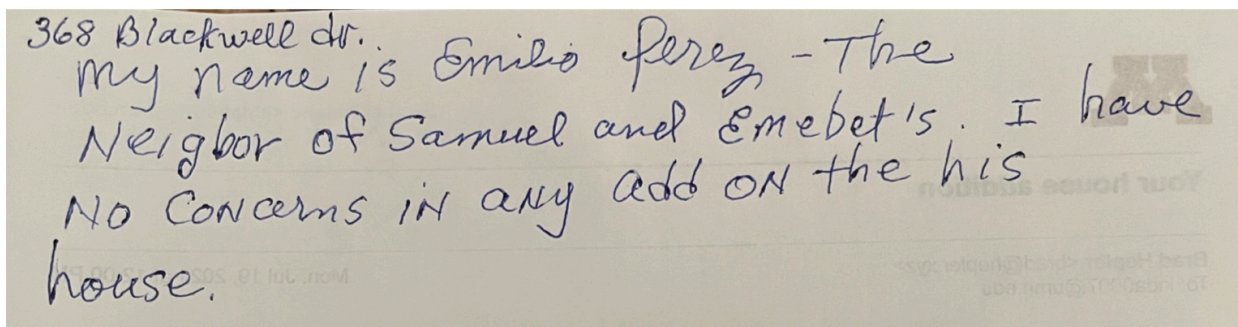 368 Blackwell dr.
My name is Emilio Perez - The
Neigbor of Samuel and Emebet's. I have
No Concerns in any add on the his
house.
Your house addition